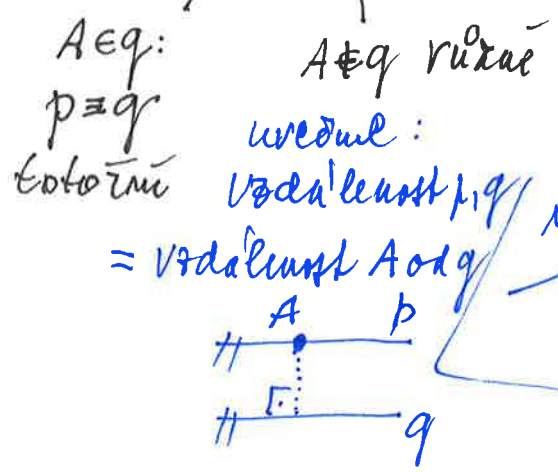 A∈q:
p≡q
totožné
A∉q různé
určíme :
vzdálenost p,q
= vzdálenost A od q
A p
q